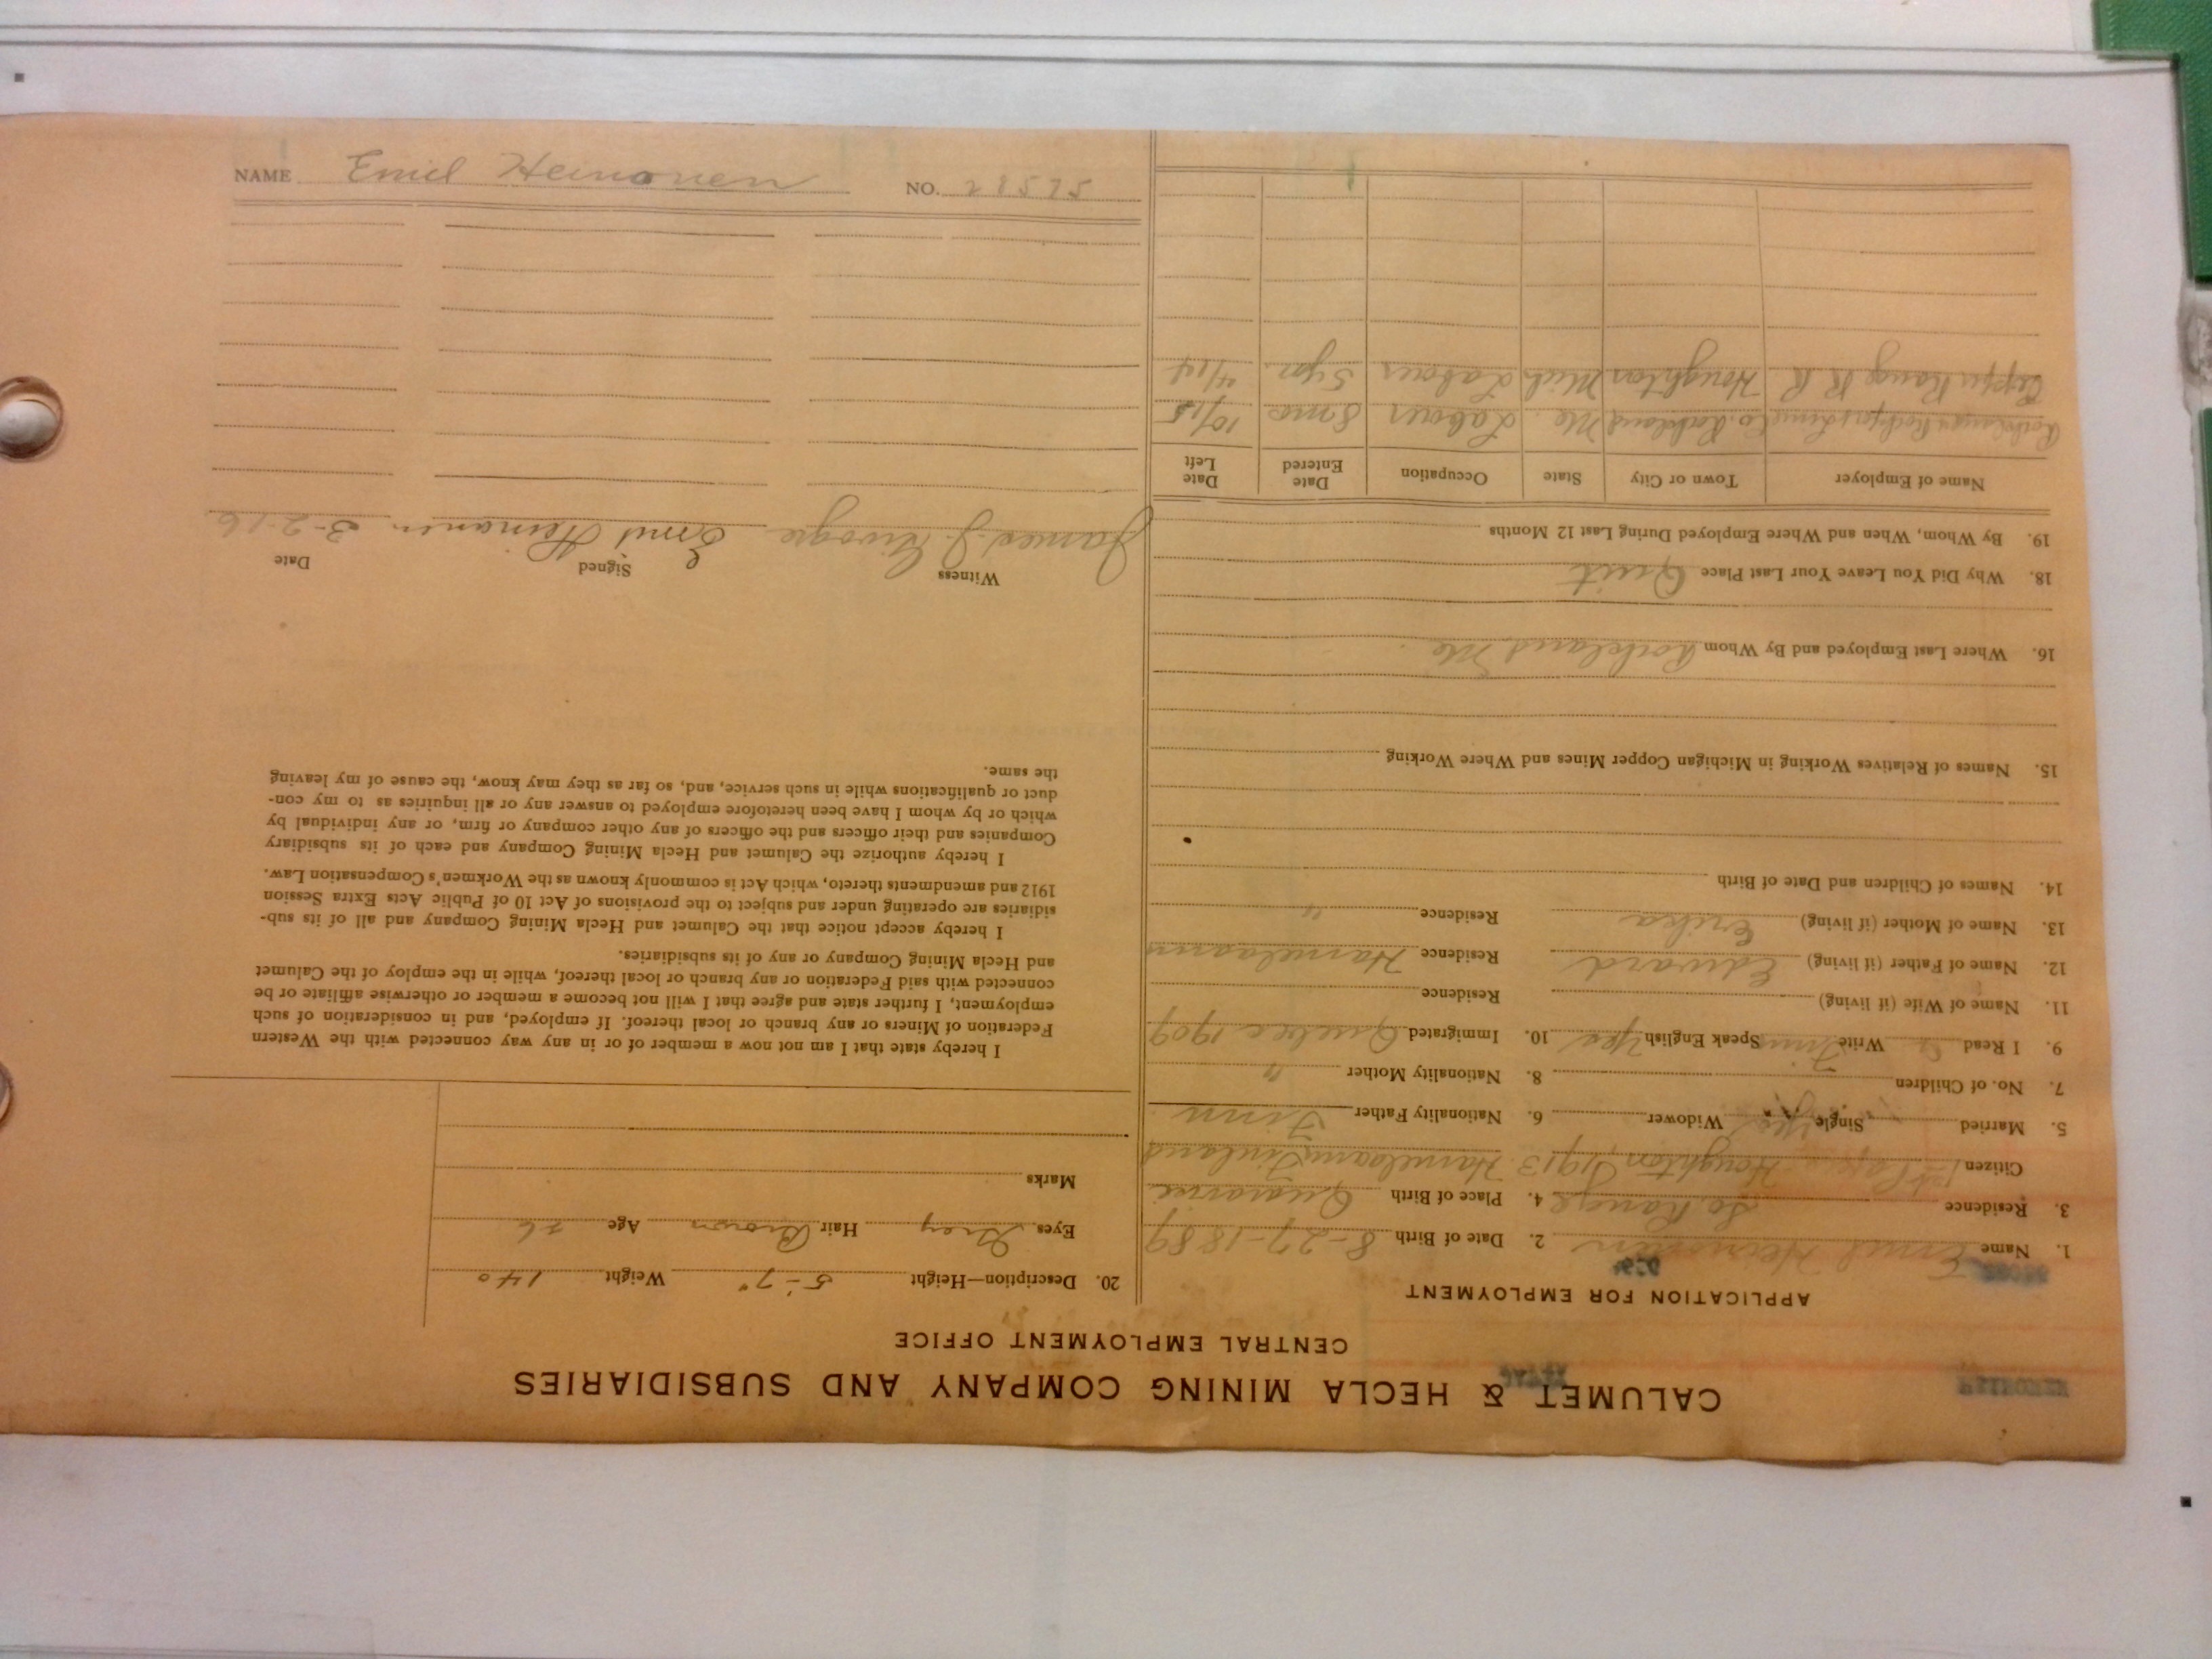 CALUMET & HECLA MINING COMPANY AND SUBSIDIARIES
CENTRAL EMPLOYMENT OFFICE
APPLICATION FOR EMPLOYMENT
1. Name Emil Heinonen 2. Date of Birth 8-27-1889
3. Residence So. Range 4. Place of Birth
Citizen 1st Paper Houghton 1913 Finland
5. Married Single yes Widower 6. Nationality Father Finn
7. No. of Children 8. Nationality Mother "
9. I Read & Write Finn Speak English Yes 10. Immigrated Quebec 1909
11. Name of Wife (if living) Residence
12. Name of Father (if living) Edward Residence
13. Name of Mother (if living) Erika Residence "
14. Names of Children and Date of Birth
15. Names of Relatives Working in Michigan Copper Mines and Where Working
16. Where Last Employed and By Whom Rockland Me.
18. Why Did You Leave Your Last Place Quit
19. By Whom, When and Where Employed During Last 12 Months
Name of Employer Town or City State Occupation Date Entered Date Left
Lime Co. Rockland Me. Labour 8 mo 10/15
Copper Range R R Houghton Mich Labour 5 yrs. 4/14
20. Description—Height 5'-7" Weight 140
Eyes Grey Hair Brown Age 26
Marks
I hereby state that I am not now a member of or in any way connected with the Western
Federation of Miners or any branch or local thereof. If employed, and in consideration of such
employment, I further state and agree that I will not become a member or otherwise affiliate or be
connected with said Federation or any branch or local thereof, while in the employ of the Calumet
and Hecla Mining Company or any of its subsidiaries.
I hereby accept notice that the Calumet and Hecla Mining Company and all of its sub-
sidiaries are operating under and subject to the provisions of Act 10 of Public Acts Extra Session
1912 and amendments thereto, which Act is commonly known as the Workmen's Compensation Law.
I hereby authorize the Calumet and Hecla Mining Company and each of its subsidiary
Companies and their officers and the officers of any other company or firm, or any individual by
which or by whom I have been heretofore employed to answer any or all inquiries as to my con-
duct or qualifications while in such service, and, so far as they may know, the cause of my leaving
the same.
Witness Signed Date
James J. Emil Heinonen 3-2-16
NAME Emil Heinonen NO. 28575